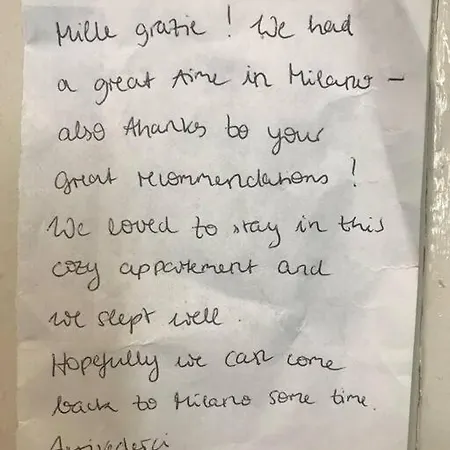 Mille grazie ! We had
a great time in Milano –
also thanks to your
great recommendations !
We loved to stay in this
cozy appartement and
we slept well.
Hopefully we can come
back to Milano some time.
Arrivederci